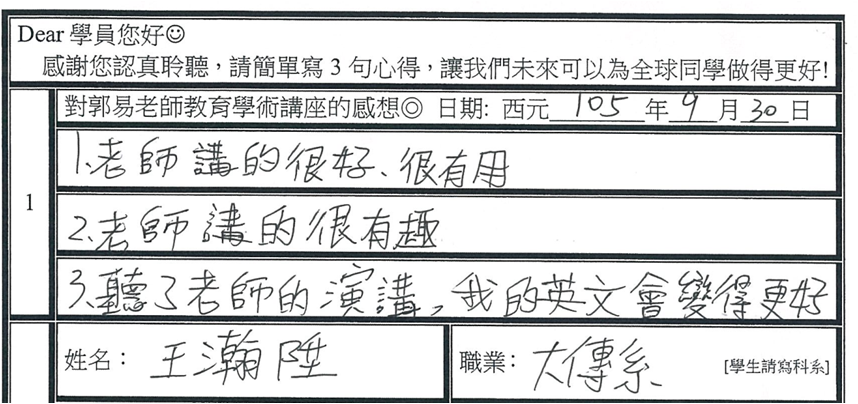 Dear 學員您好☺
感謝您認真聆聽，請簡單寫 3 句心得，讓我們未來可以為全球同學做得更好!
對郭易老師教育學術講座的感想◎ 日期: 西元 105 年 9 月 30 日
1
1.老師講的很好、很有用
2.老師講的很有趣
3.聽了老師的演講，我的英文會變得更好
姓名： 王瀚陞 職業： 大傳系 [學生請寫科系]